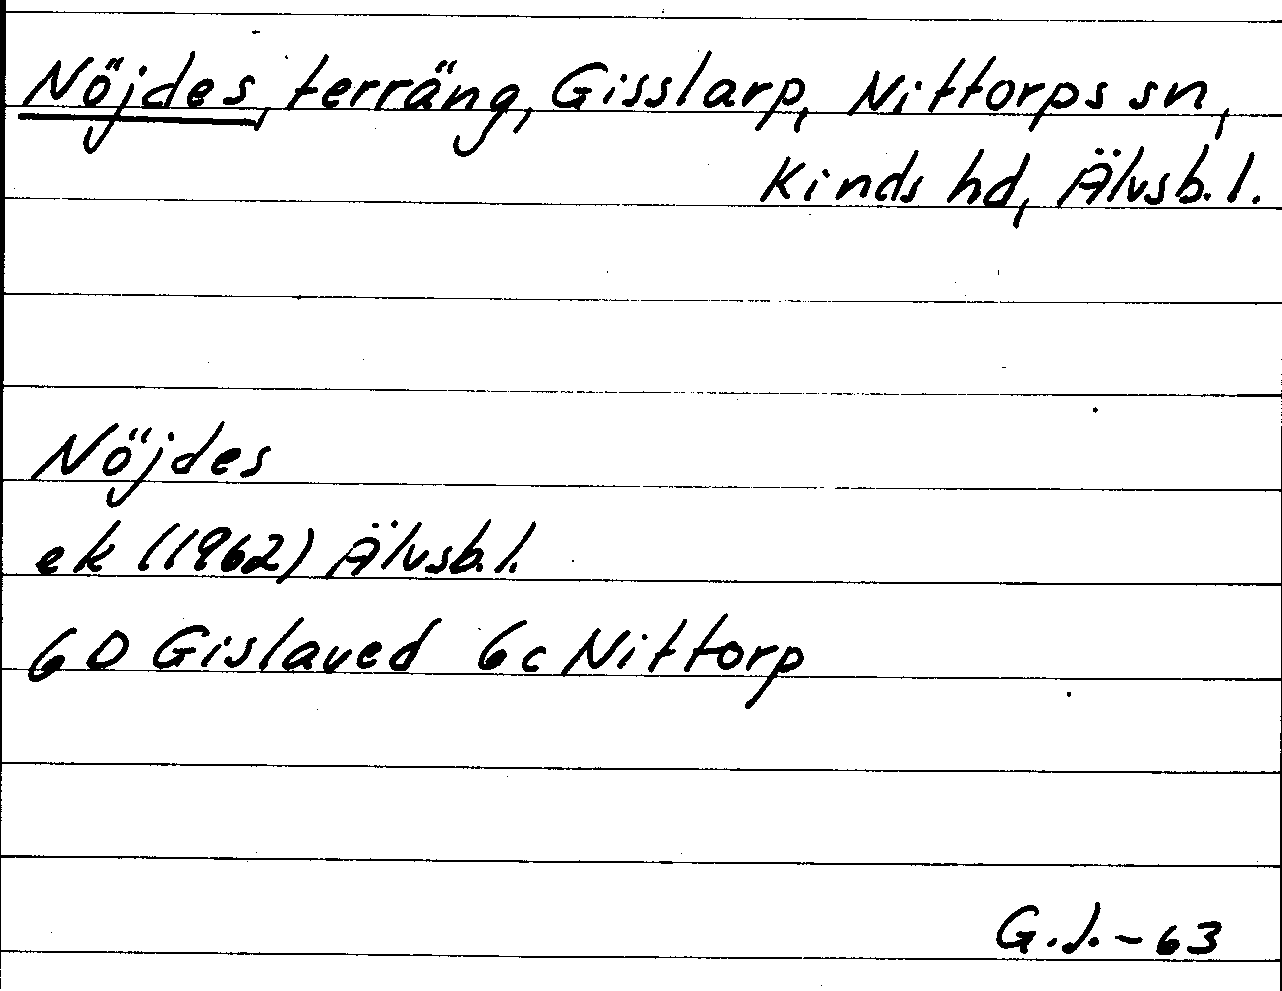 Nöjdes, terräng, Gisslarp, Nittorps sn,
Kinds hd, Älvsb. l.
Nöjdes
ek (1962) Älvsb. l.
6D Gislaved 6c Nittorp
G.J.-63